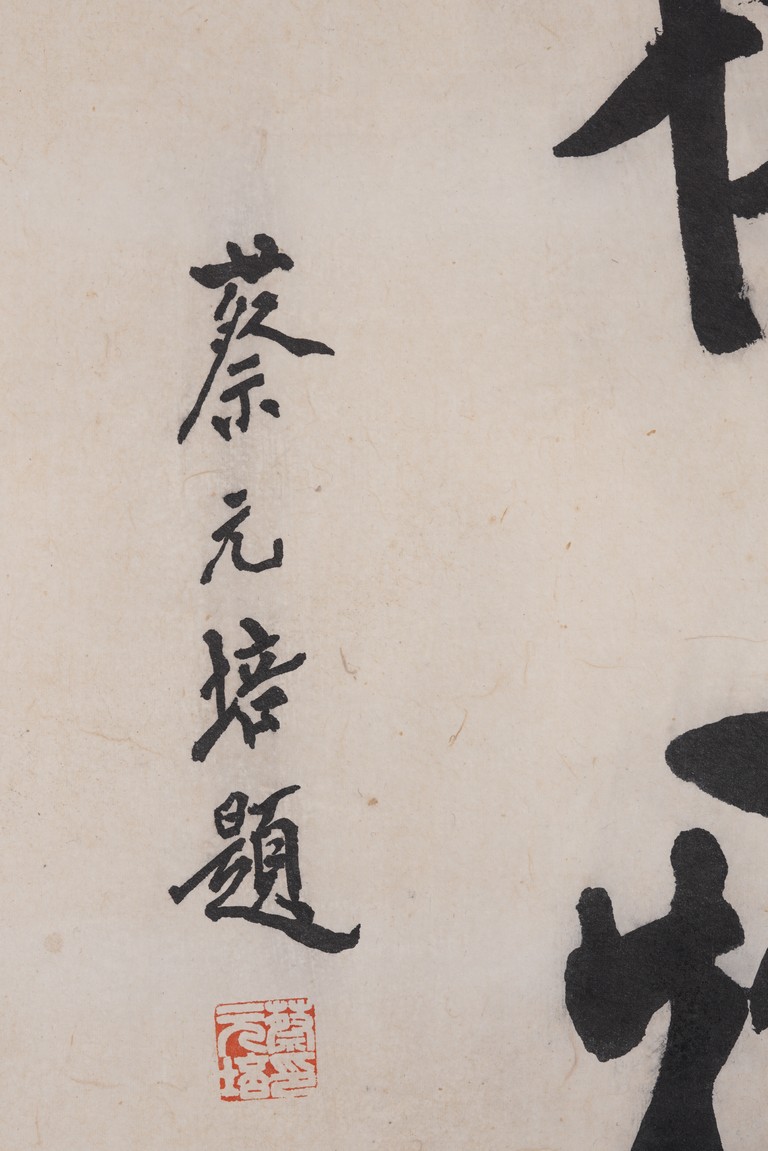 蔡元培題
蔡印元培